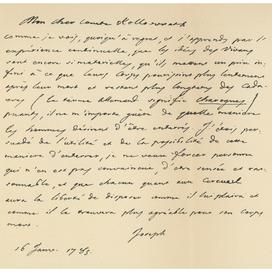 Mon cher Comte Kollowrath
comme je vois, quoiqu'à regret, et j'apprends par l'
expérience continuelle, que les idées des vivans
sont encore si materielles, qu'ils mettent un prix in-
fini à ce que leurs Corps pourissent plus lentement
après leur mort et restent plus longtems des Cada-
vres (le terme allemand signifie charognes)
puants, il ne m'importe guère de quelle manière
les hommes désirent d'être enterrés
suadé de l'utilité et de la possibilité de cette
manière d'enterrer, je ne veux forcer personne
qui n'en est pas convaincue, d'être sensée et rai-
sonnable, et que chacun quant aux Cercueil
aura la liberté de disposer comme il lui plaira et
comme il le trouvera plus agréable pour son corps
mort.
Joseph
16 Janv.